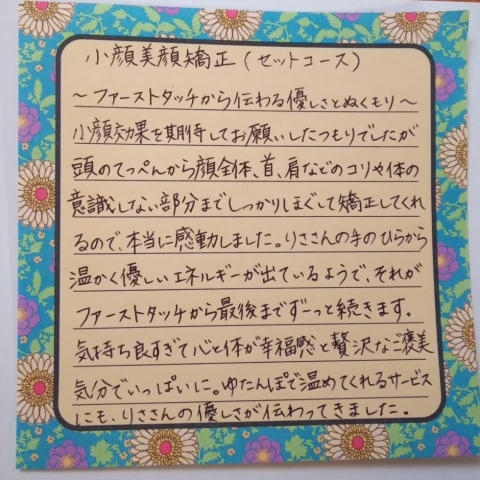 小顔美顔矯正(セットコース)
～ファーストタッチから伝わる優しさとぬくもり～
小顔効果を期待してお願いしたつもりでしたが
頭のてっぺんから顔全体、首、肩などのコリや体の
意識しない部分までしっかりほぐして矯正してくれ
るので、本当に感動しました。りささんの手のひらから
温かく優しいエネルギーが出ているようで、それが
ファーストタッチから最後までずーっと続きます。
気持ち良すぎて心と体が幸福感と贅沢なご褒美
気分でいっぱいに。ゆたんぽで温めてくれるサービス
にも、りささんの優しさが伝わってきました。